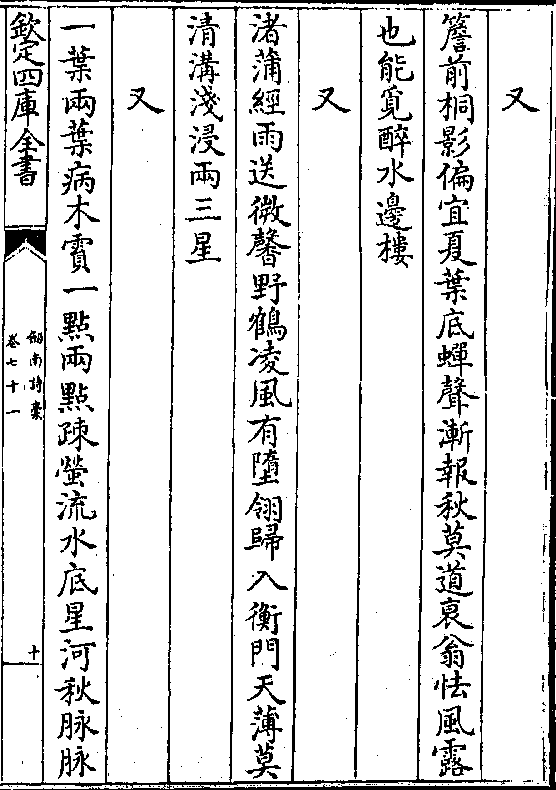 又
簷前桐影偏宜夏葉底蟬聲漸報秋莫道衰翁怯風露
也能覓醉水邊樓
又
渚蒲經雨送微馨野鶴凌風有墮翎歸入衡門天薄莫
清溝淺浸兩三星
又
一葉兩葉病木霣一點兩點疎螢流水底星河秋脉脉
欽定四庫全書
劒南詩稾
卷七十一
十